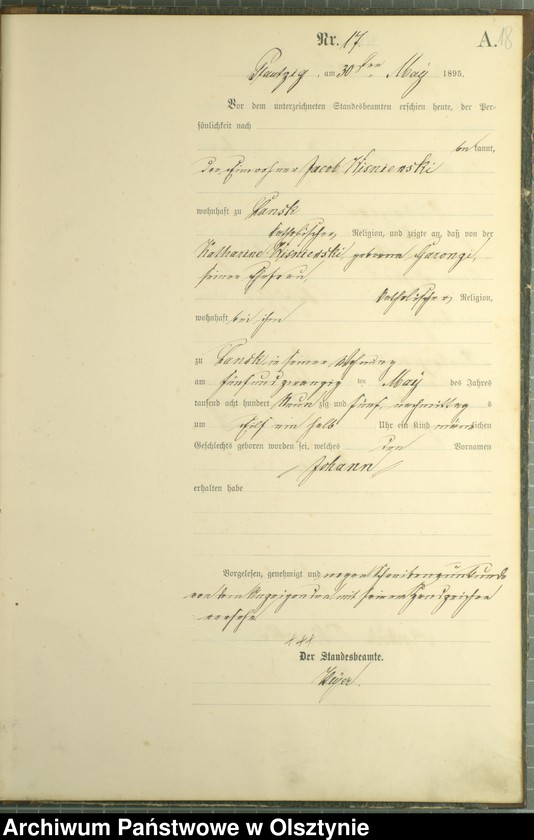 Nr. 17. A. 18
am 30ten May 1895.
Vor dem unterzeichneten Standesbeamten erschien heute, der Per-
sönlichkeit nach
be kannt,
der Einwohner Jacob Wisniewski
wohnhaft zu Lansk
katholischer Religion, und zeigte an, daß von der
Katharine Wisniewski geborene
seiner Ehefrau
katholischer Religion,
wohnhaft bei ihm
zu Lansk in seiner Wohnung
am fünfundzwanzig ten May des Jahres
tausend acht hundert Neun zig und fünf, nachmittag s
um Eilf ein halb Uhr ein Kind männlichen
Geschlechts geboren worden sei, welches den Vornamen
Johann
erhalten habe
Vorgelesen, genehmigt und wegen Schreibensunkunde
von dem Anzeigenden mit seinem Handzeichen
versehn
+++
Der Standesbeamte.
Archiwum Państwowe w Olsztynie